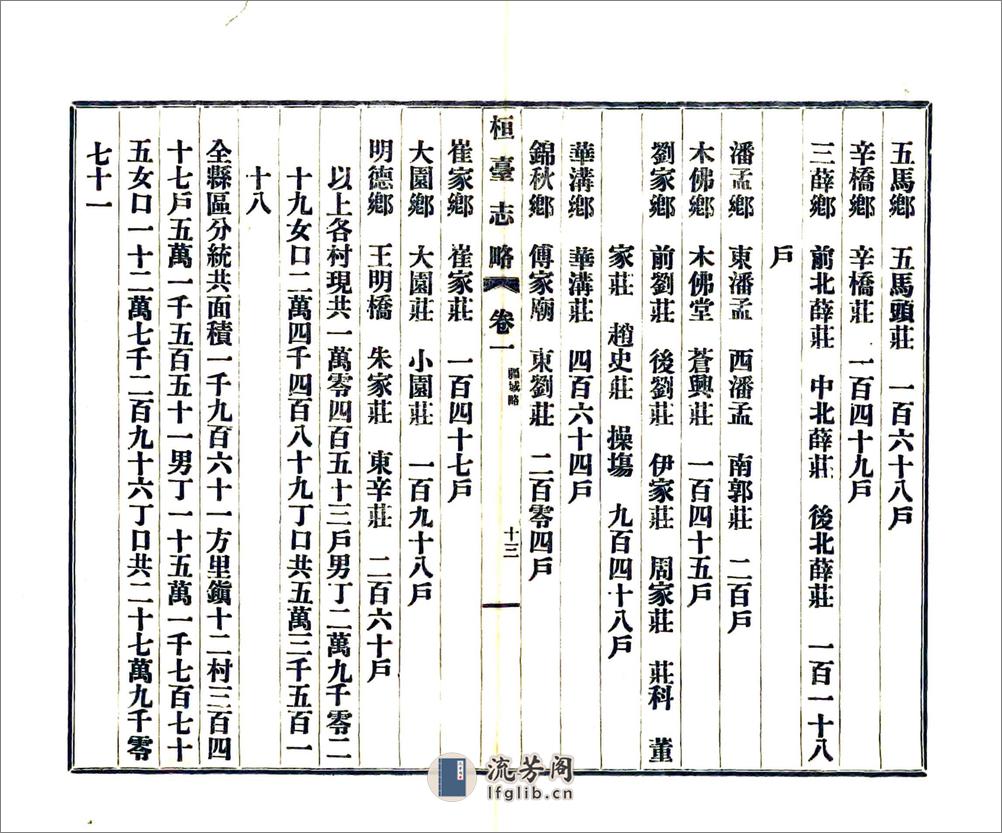 五馬鄉　五馬頭莊　一百六十八戶
辛橋鄉　辛橋莊　一百四十九戶
三薛鄉　前北薛莊　中北薛莊　後北薛莊　一百一十八
戶
潘孟鄉　東潘孟　西潘孟　南郭莊　二百戶
木佛鄉　木佛堂　蒼興莊　一百四十五戶
劉家鄉　前劉莊　後劉莊　伊家莊　周家莊　莊科　董
家莊　趙史莊　操塲　九百四十八戶
華溝鄉　華溝莊　四百六十四戶
錦秋鄉　傅家廟　東劉莊　二百零四戶
桓臺志略　卷一　疆域略　十三
崔家鄉　崔家莊　一百四十七戶
大園鄉　大園莊　小園莊　一百九十八戶
明德鄉　王明橋　朱家莊　東辛莊　二百六十戶
以上各村現共一萬零四百五十三戶男丁二萬九千零二
十九女口二萬四千四百八十九丁口共五萬三千五百一
十八
全縣區分統共面積一千九百六十一方里鎭十二村三百四
十七戶五萬一千五百五十一男丁一十五萬一千七百七十
五女口一十二萬七千二百九十六丁口共二十七萬九千零
七十一
流芳阁
lfglib.cn